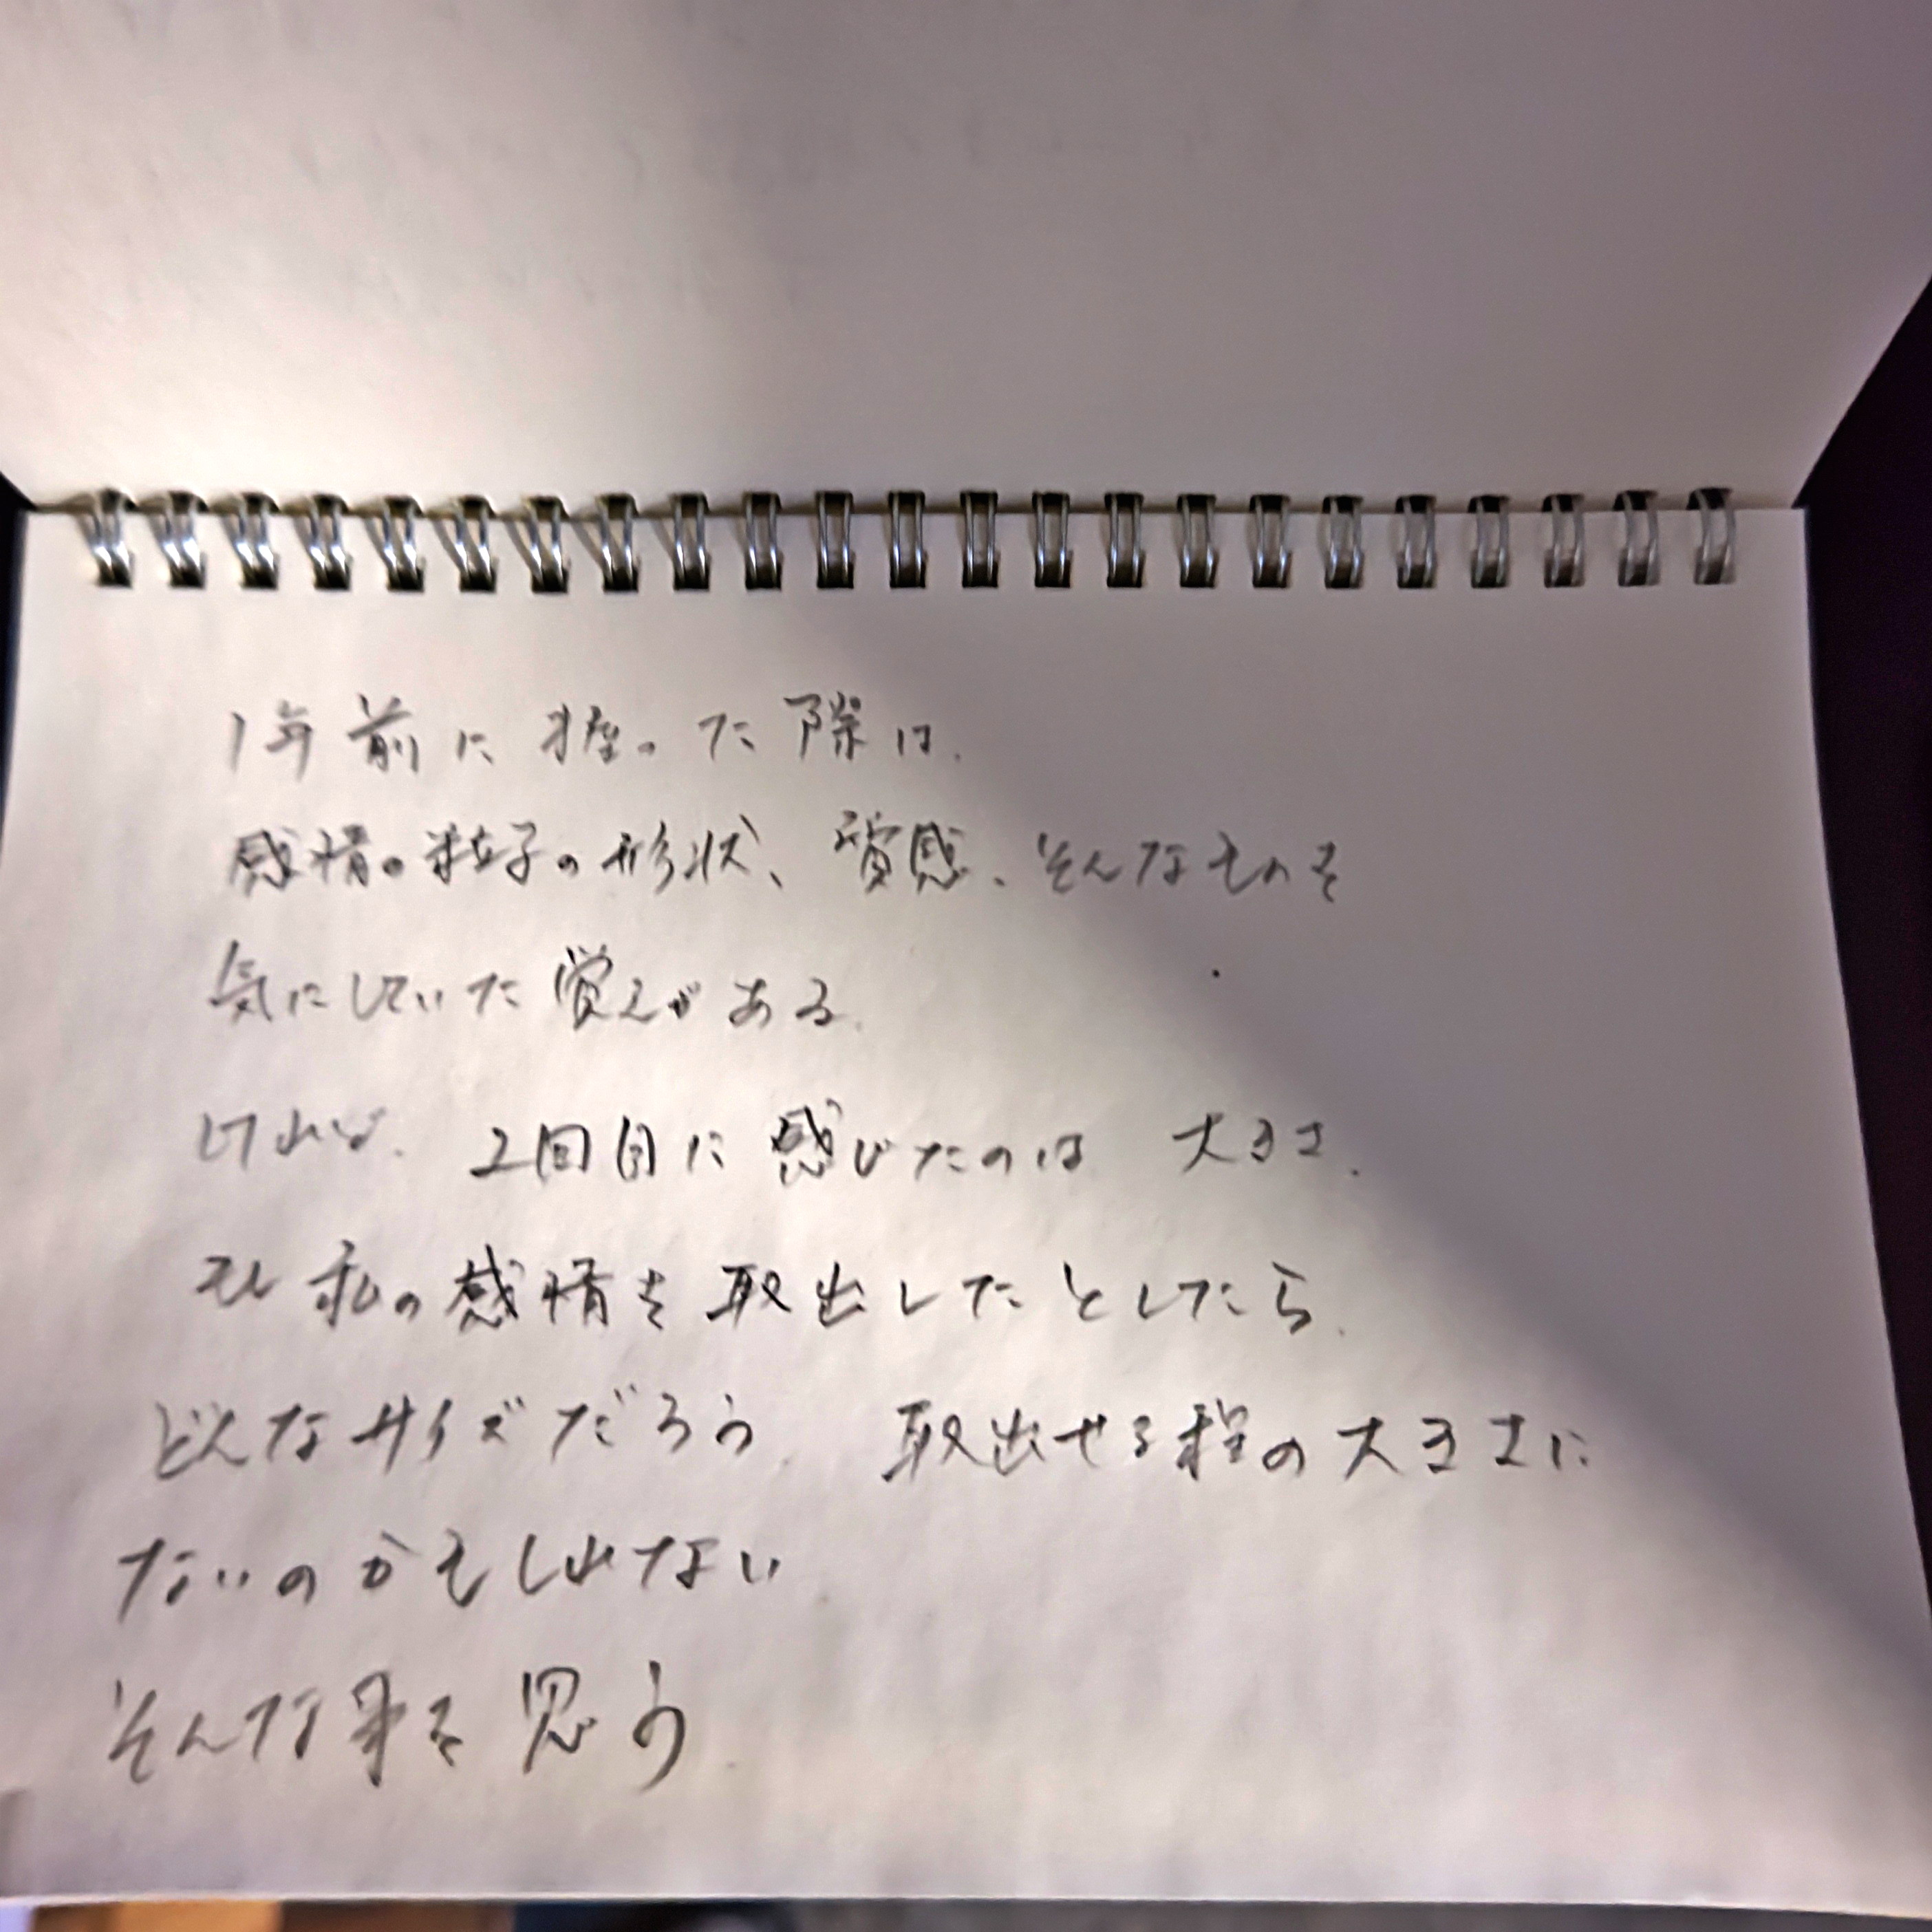 1年前に握った際は、
感情の粒子の形状、質感、そんなものを
気にしていた覚えがある。
けれど、2回目に感じたのは 大きさ。
私の感情を取出したとしたら、
どんなサイズだろう。 取出せる程の大きさに
ないのかもしれない
そんな事を思う。